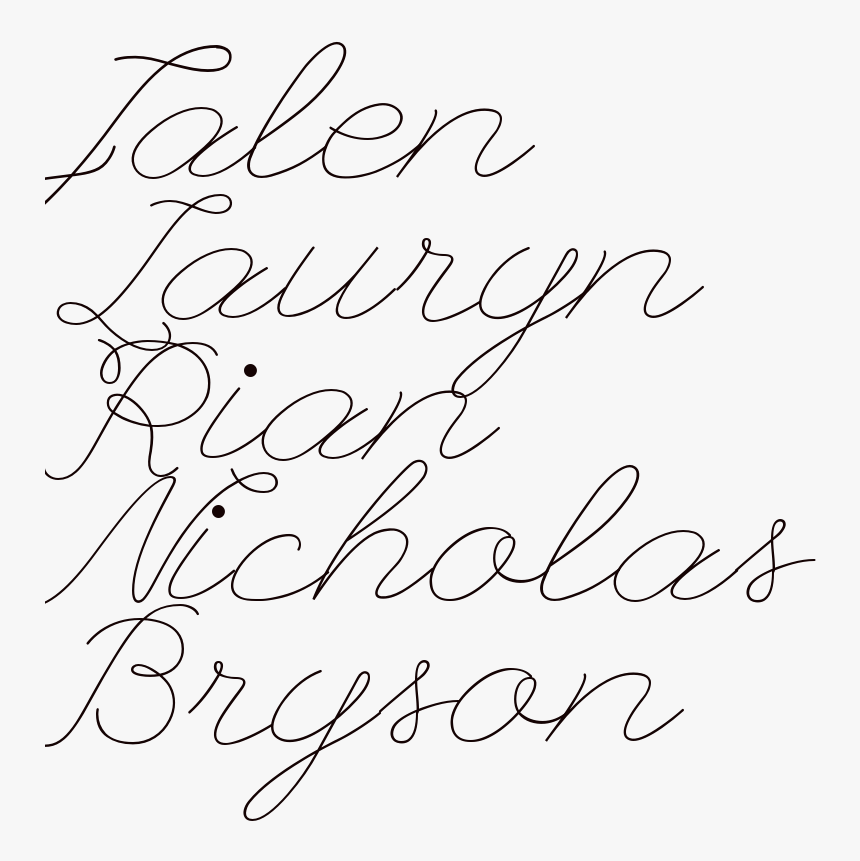 Jalen
Lauryn
Rian
Nicholas
Bryson